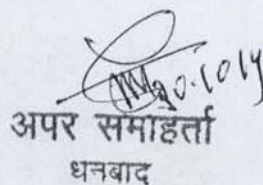 20.10.14
अपर समाहर्ता
धनबाद